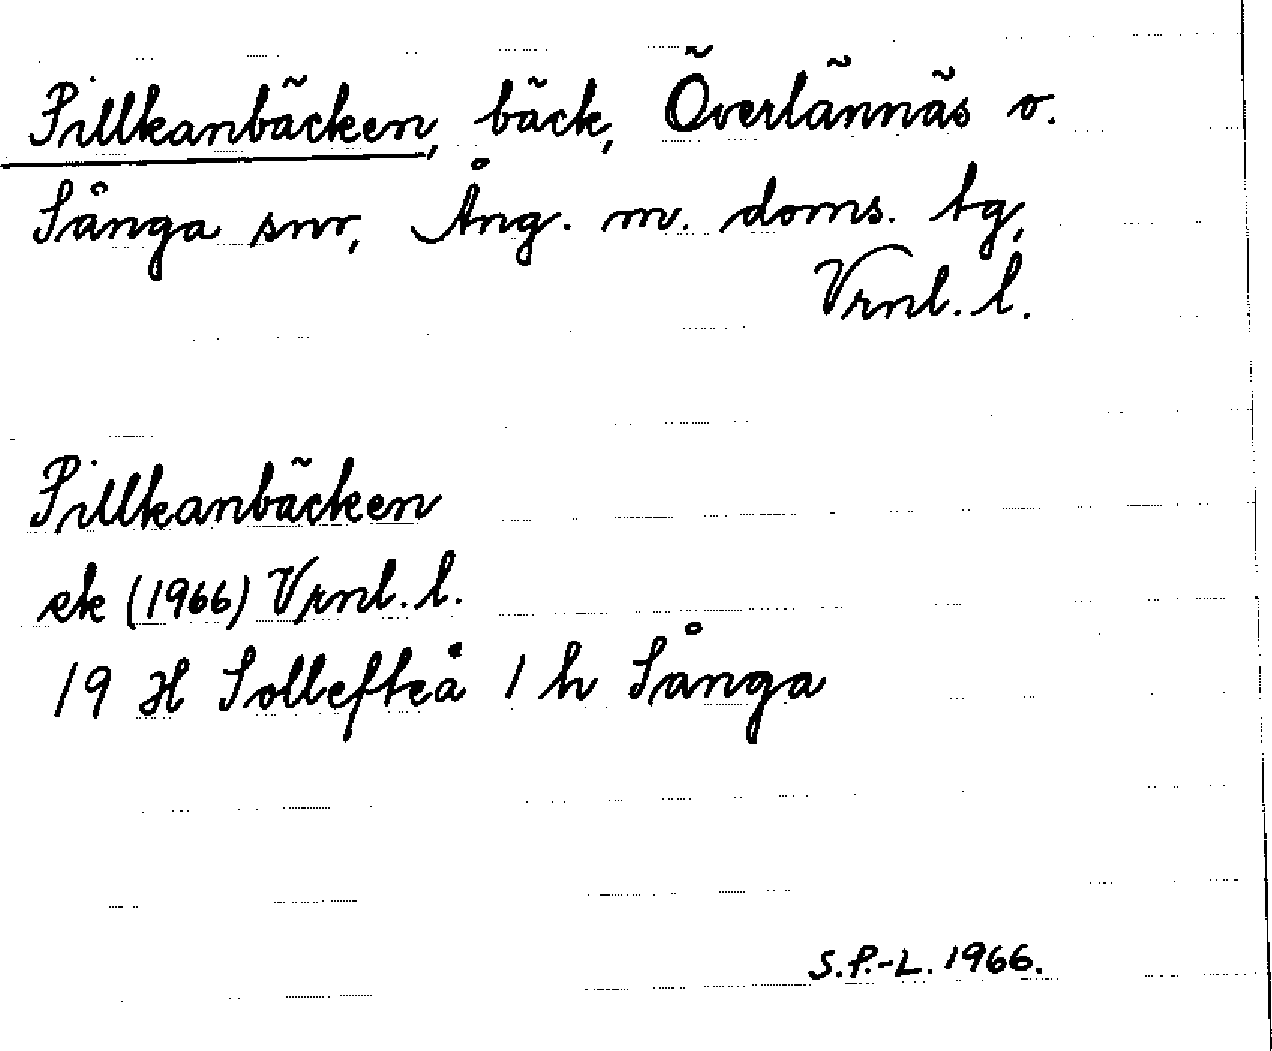 Pillkanbäcken, bäck, Överlännäs o.
Sånga snr, Ång. m. doms. tg,
Vrnl. l.
Pillkanbäcken
ek (1966) Vrnl. l.
19 H Sollefteå 1 h Sånga
S.P.-L. 1966.